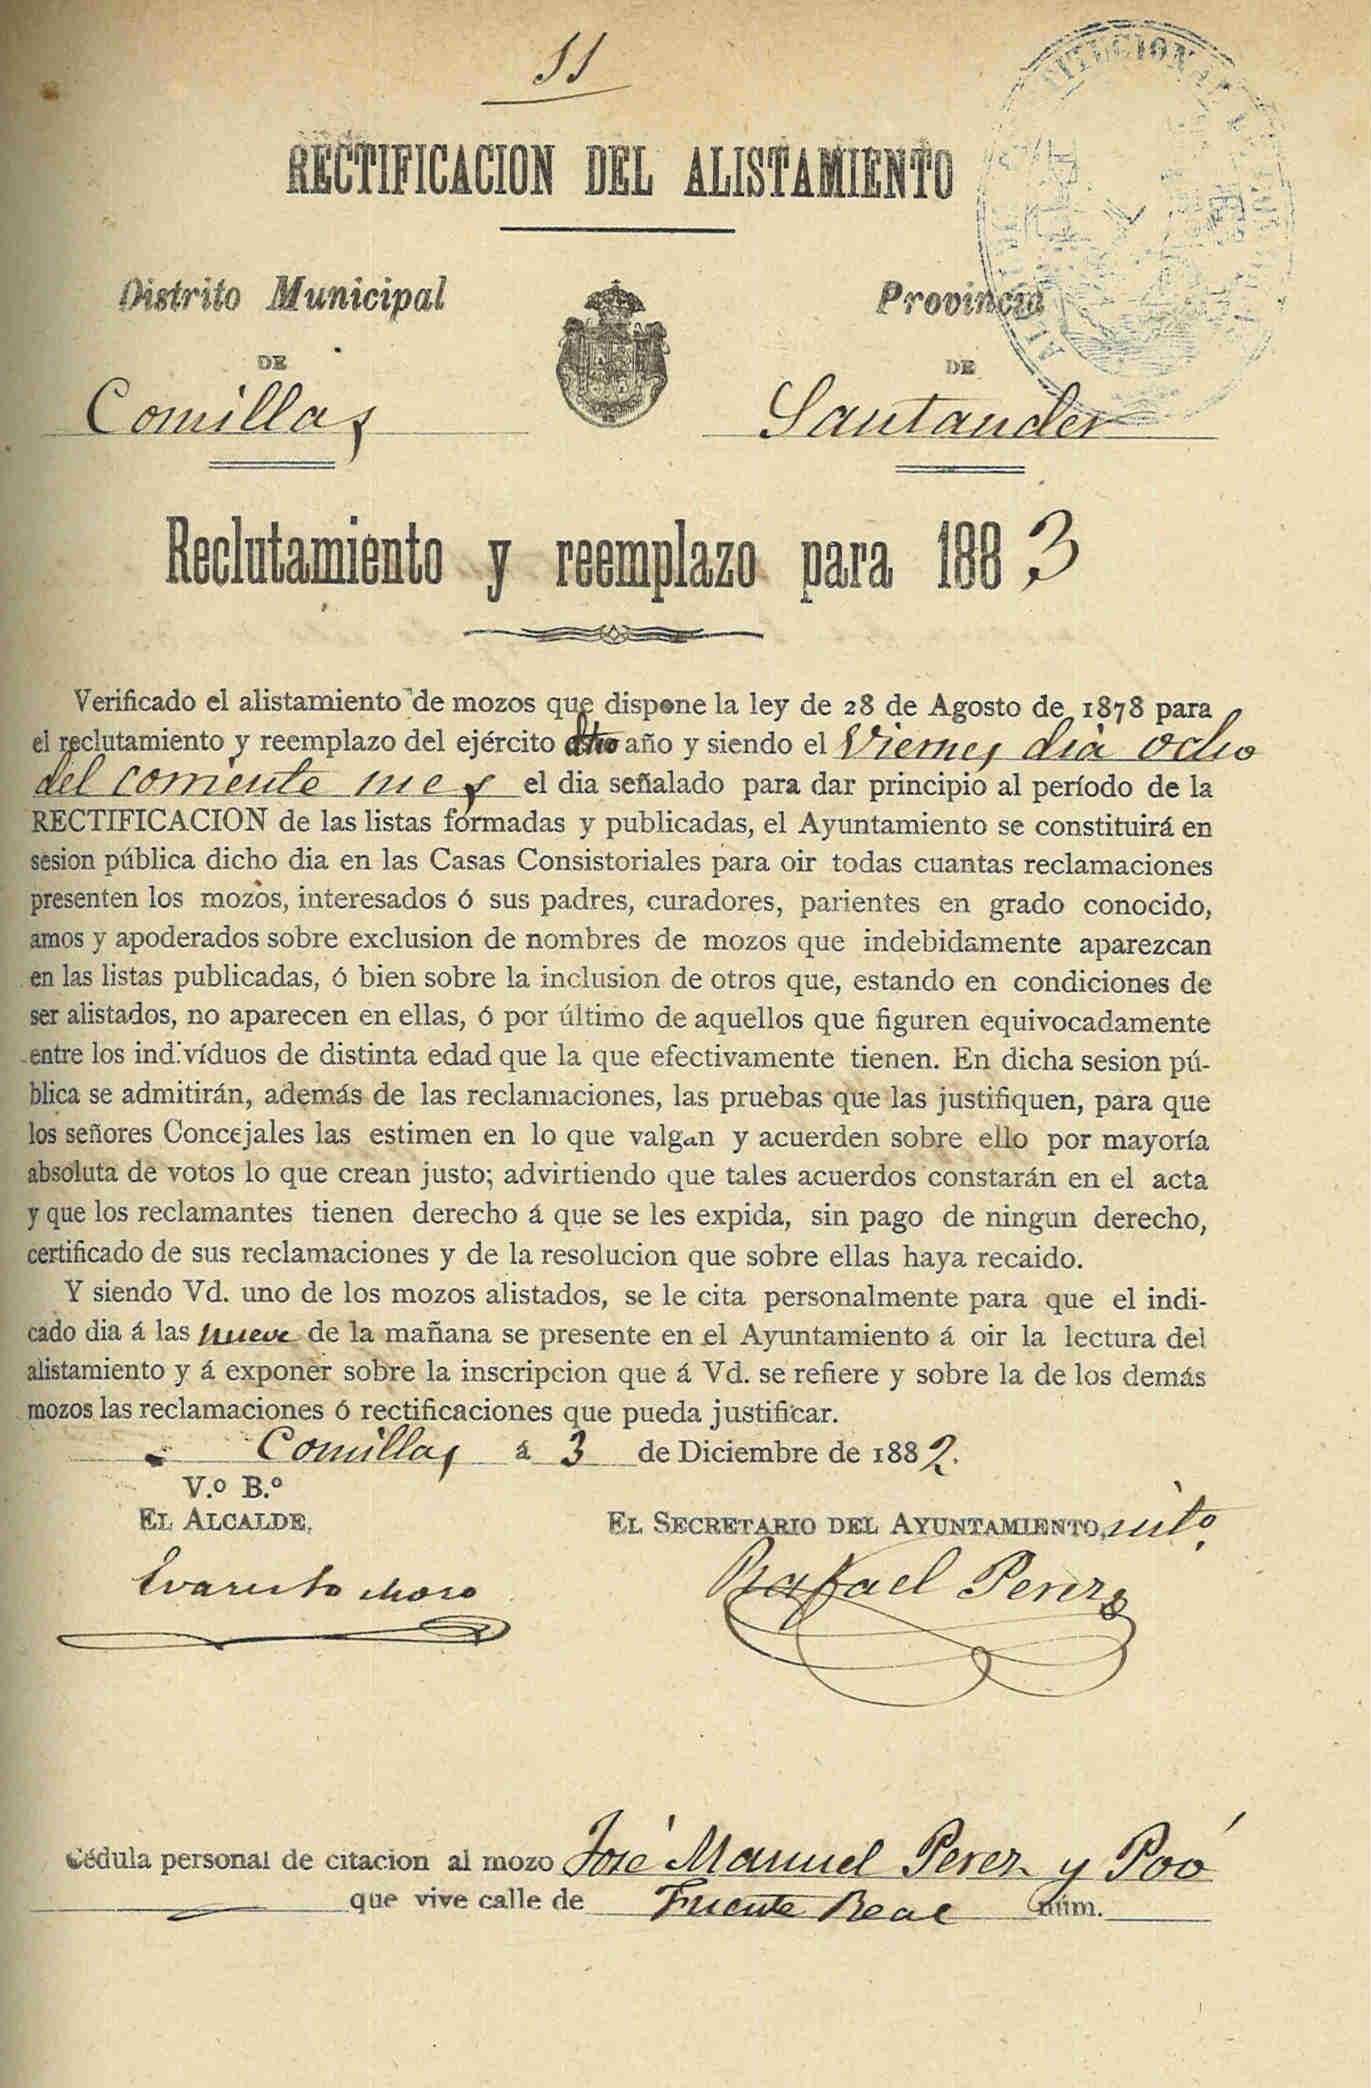 11
RECTIFICACION DEL ALISTAMIENTO
Distrito Municipal
DE
Comillas
Provincia
DE
Santander
Reclutamiento y reemplazo para 1883
Verificado el alistamiento de mozos que dispone la ley de 28 de Agosto de 1878 para
el reclutamiento y reemplazo del ejército dho año y siendo el Viernes dia ocho
del corriente mes el dia señalado para dar principio al período de la
RECTIFICACION de las listas formadas y publicadas, el Ayuntamiento se constituirá en
sesion pública dicho dia en las Casas Consistoriales para oir todas cuantas reclamaciones
presenten los mozos, interesados ó sus padres, curadores, parientes en grado conocido,
amos y apoderados sobre exclusion de nombres de mozos que indebidamente aparezcan
en las listas publicadas, ó bien sobre la inclusion de otros que, estando en condiciones de
ser alistados, no aparecen en ellas, ó por último de aquellos que figuren equivocadamente
entre los individuos de distinta edad que la que efectivamente tienen. En dicha sesion pú-
blica se admitirán, además de las reclamaciones, las pruebas que las justifiquen, para que
los señores Concejales las estimen en lo que valgan y acuerden sobre ello por mayoría
absoluta de votos lo que crean justo; advirtiendo que tales acuerdos constarán en el acta
y que los reclamantes tienen derecho á que se les expida, sin pago de ningun derecho,
certificado de sus reclamaciones y de la resolucion que sobre ellas haya recaido.
Y siendo Vd. uno de los mozos alistados, se le cita personalmente para que el indi-
cado dia á las nueve de la mañana se presente en el Ayuntamiento á oir la lectura del
alistamiento y á exponer sobre la inscripcion que á Vd. se refiere y sobre la de los demás
mozos las reclamaciones ó rectificaciones que pueda justificar.
Comillas á 3 de Diciembre de 1882.
V.º B.º
EL ALCALDE,
EL SECRETARIO DEL AYUNTAMIENTO, int.º
Evaristo Moro
Rafael Perez
Cédula personal de citacion al mozo José Manuel Perez y Poó
que vive calle de Fuente Real núm.